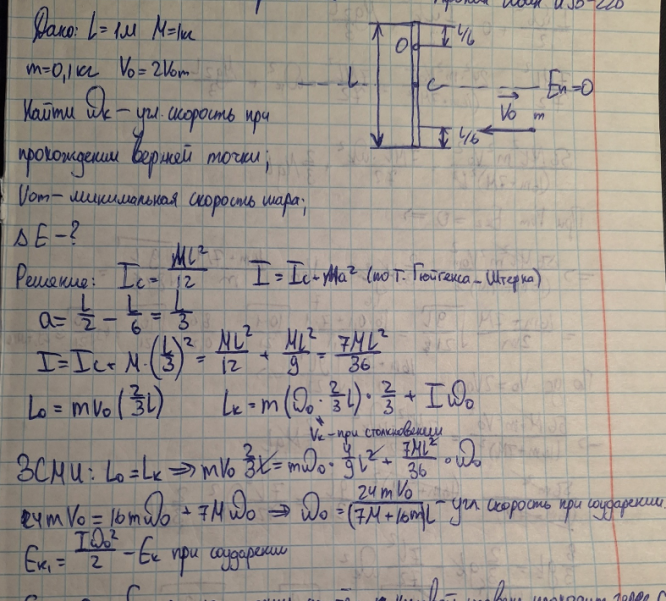 Дано: L=1м M=1кг
m=0,1кг V₀=2V₀m
Найти ω_к – угл. скорость при
прохождении верней точки;
V₀m – минимальная скорость шара;
ΔE – ?
L
O
C
L/6
L/6
V₀
m
Eп=0
Решение: Ic = ML²/12 I = Ic + Ma² (по т. Гюйгенса – Штерна)
a = L/2 – L/6 = L/3
I = Ic + M·(L/3)² = ML²/12 + ML²/9 = 7ML²/36
L₀ = mV₀(2/3 L) Lк = m(ω₀·2/3 L)·2/3 + Iω₀
Vк – при столкновении
ЗСМИ: L₀ = Lк ⇒ mV₀ 2/3 L = mω₀·4/9 L² + 7ML²/36·ω₀
24mV₀ = 16mω₀ + 7Mω₀ ⇒ ω₀ = 24mV₀/(7M+16m)L – угл скорость при соударении.
Eк₁ = Iω₀²/2 – Eк при соударении